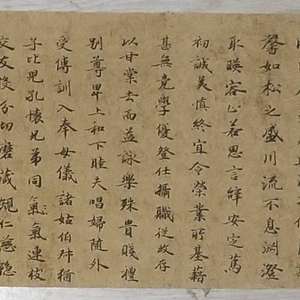 馨如松之盛川流不息淵澄
取暎容止若思言辭安定篤
初誠美慎終宜令榮業所基藉
甚無竟學優登仕攝職從政存
以甘棠去而益詠樂殊貴賤禮
別尊卑上和下睦夫唱婦隨外
受傅訓入奉母儀諸姑伯叔猶
子比兒孔懷兄弟同氣氣連枝
交友投分切磨箴規仁慈隱